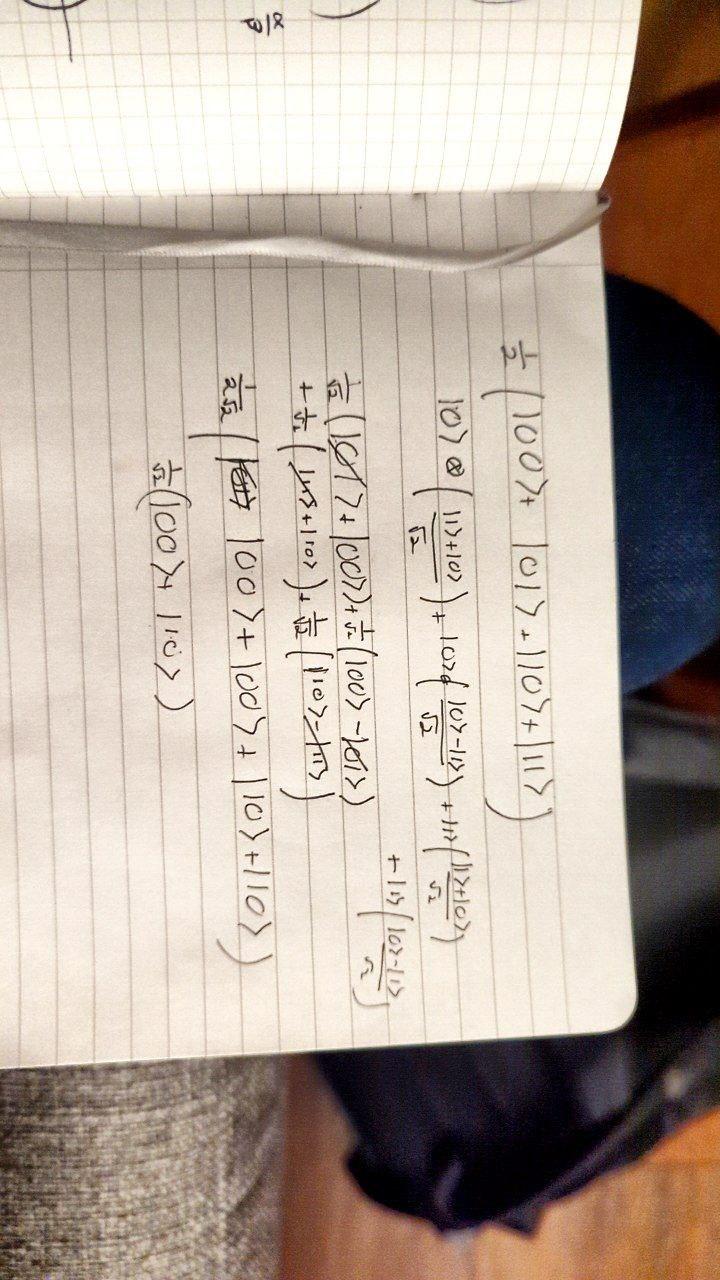 α/β
1/2 (|00> + |01> + |10> + |11>)
|0> ⊗ (|1>+|0>/√2) + |0>⊗(|0>-|1>/√2) + |1>(|1>+|0>/√2)
+ |1>(|0>-|1>/√2)
1/√2 (|01> + |00>) + 1/√2 (|00> - |01>)
+ 1/√2 (|11> + |10>) + 1/√2 (|10> - |11>)
1/2√2 (|00> + |00> + |10> + |10>)
1/√2 (|00> + |10>)